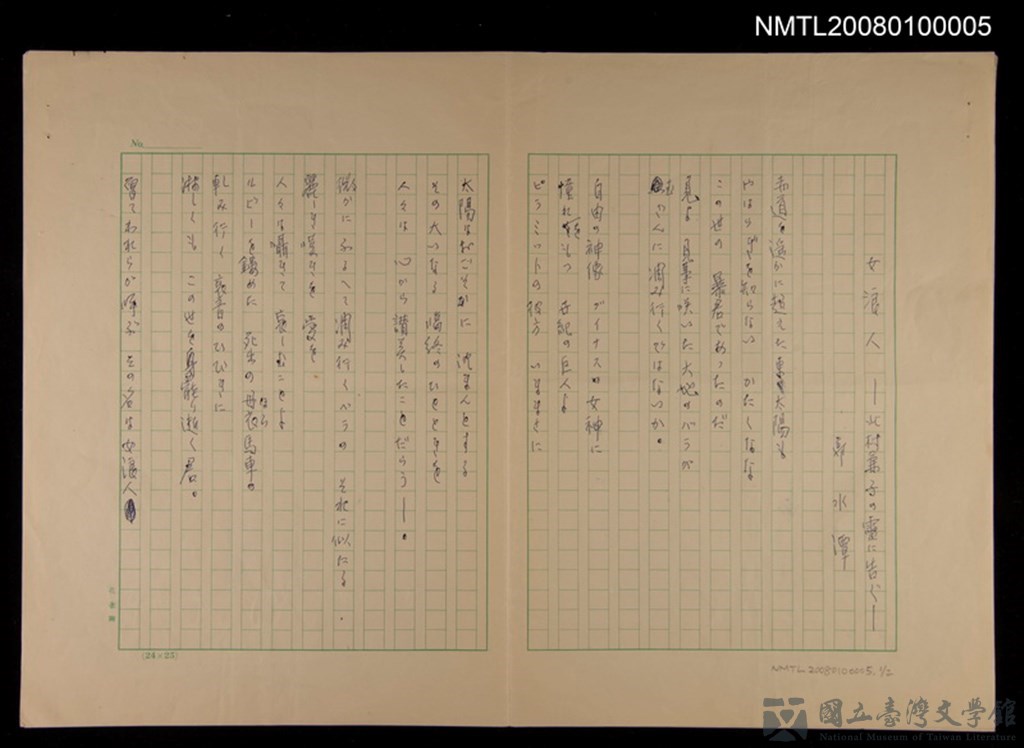 NMTL20080100005
女浪人 ― 北村兼子の霊に告ぐ ―
郭水潭
赤道を遥かに超えた 太陽も
やはらぎを知らない かたくなな
この世の 暴君であったのだ
見よ 見事に咲いた大地のバラが
むざんに凋み行くではないか。
自由の神像 ヴィナスの女神に
憧れをもつ 世紀の巨人よ
ピラミットの彼方 いままさに
No.
太陽はおごそかに 沈まんとする
その大いなる 臨終のひとときを
人々は 心から讃美したことだらう ― 。
微かに ふるへて凋み行くバラの それに似たる .
麗しき嘆きを 愛を
人々は囁きて 哀しむことよ
ルビーを鏤めた 死出の母衣馬車の
ほろ
軋み行く 哀音のひびきに
淋しくも この世を 逝く君。
曽てわれらが呼ぶ その名は女浪人
(24×25)
NMTL20080100005, 1/2
國立臺灣文學館
National Museum of Taiwan Literature